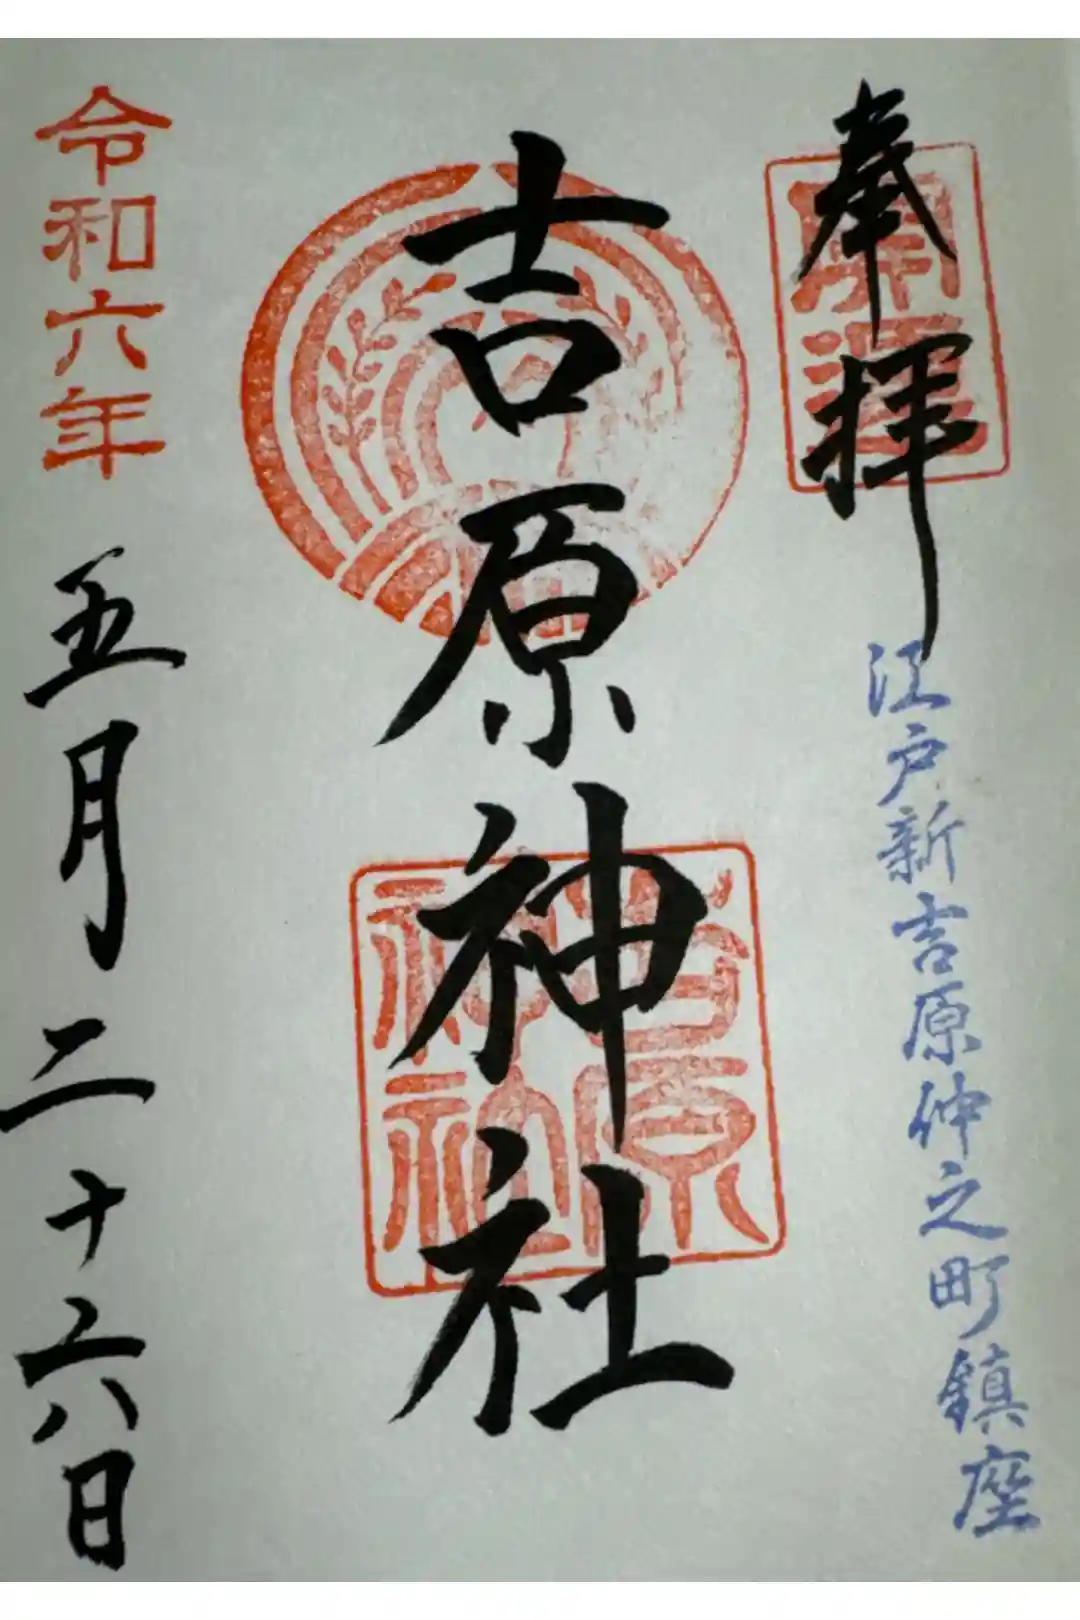 奉拝
開運
江戸新吉原仲之町鎮座
吉原神社
吉原
神社
令和六年
五月二十六日